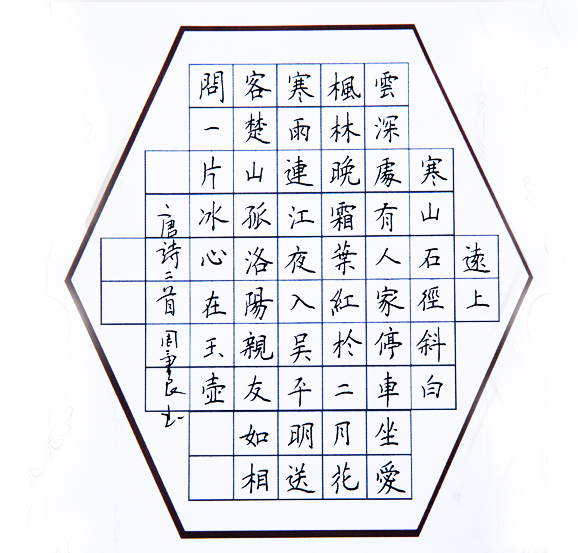 遠上
寒山石徑斜白
雲深處有人家停車坐愛
楓林晚霜葉紅於二月花
寒雨連江夜入吳平明送
客楚山孤洛陽親友如相
問一片冰心在玉壺
唐詩二首 周良书